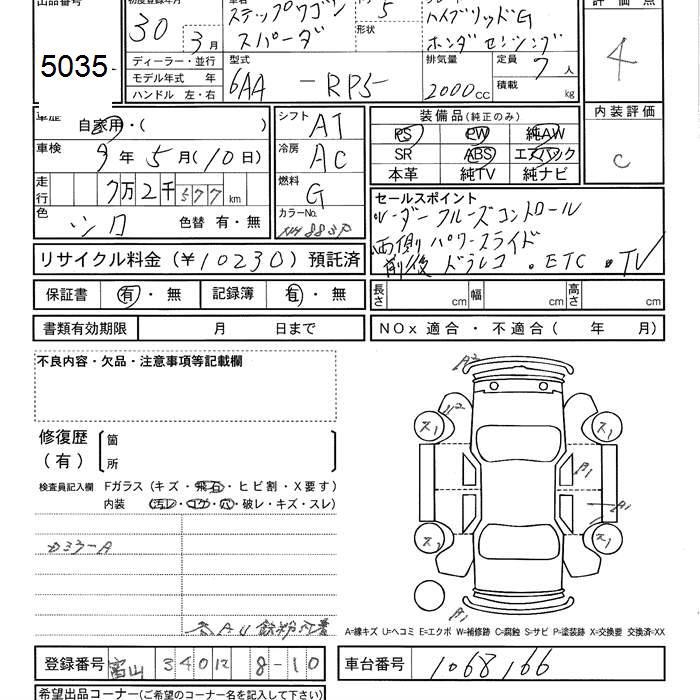 出品番号 初度登録年月 車名 グレード 評価点
30 3月 ステップワゴン スパーダ 形状 5 ハイブリッドG ホンダセンシング 4
5035
ディーラー・並行 型式 排気量 定員 7人
モデル年式 年 6AA - RP5 - 2000cc 積載 kg
ハンドル 左・右
内装評価
C
車歴 自家用・( ) シフト AT 装備品(純正のみ)
PS PW 純AW
車検 年5月(10日) 冷房 AC SR ABS エアバック
本革 純TV 純ナビ
走行 7万2千577km 燃料 G
セールスポイント
色 シロ 色替 有・無 カラーNo. NH883P
レーダークルーズコントロール
両側パワースライド
前後ドラレコ・ETC・TV
リサイクル料金(¥10230)預託済
保証書 有・無 記録簿 有・無 長さ cm 幅 cm 高さ cm
書類有効期限 月 日まで NOx 適合・不適合( 年 月)
不良内容・欠品・注意事項等記載欄
修復歴(有) 箇所
検査員記入欄 Fガラス(キズ・飛石・ヒビ割・X要す)
内装 (汚レ・コゲ・穴・破レ・キズ・スレ)
カミラーA
各AU鉄粉付着
A2
U2
ス1 ス1
A1
A1
ス2 ス1
A1
A=線キズ U=ヘコミ E=エクボ W=補修跡 C=腐蝕 S=サビ P=塗装跡 X=交換要 交換済=XX
登録番号 富山 340 8-10 車台番号 1068166
希望出品コーナー(ご希望のコーナー名を記入して下さい)